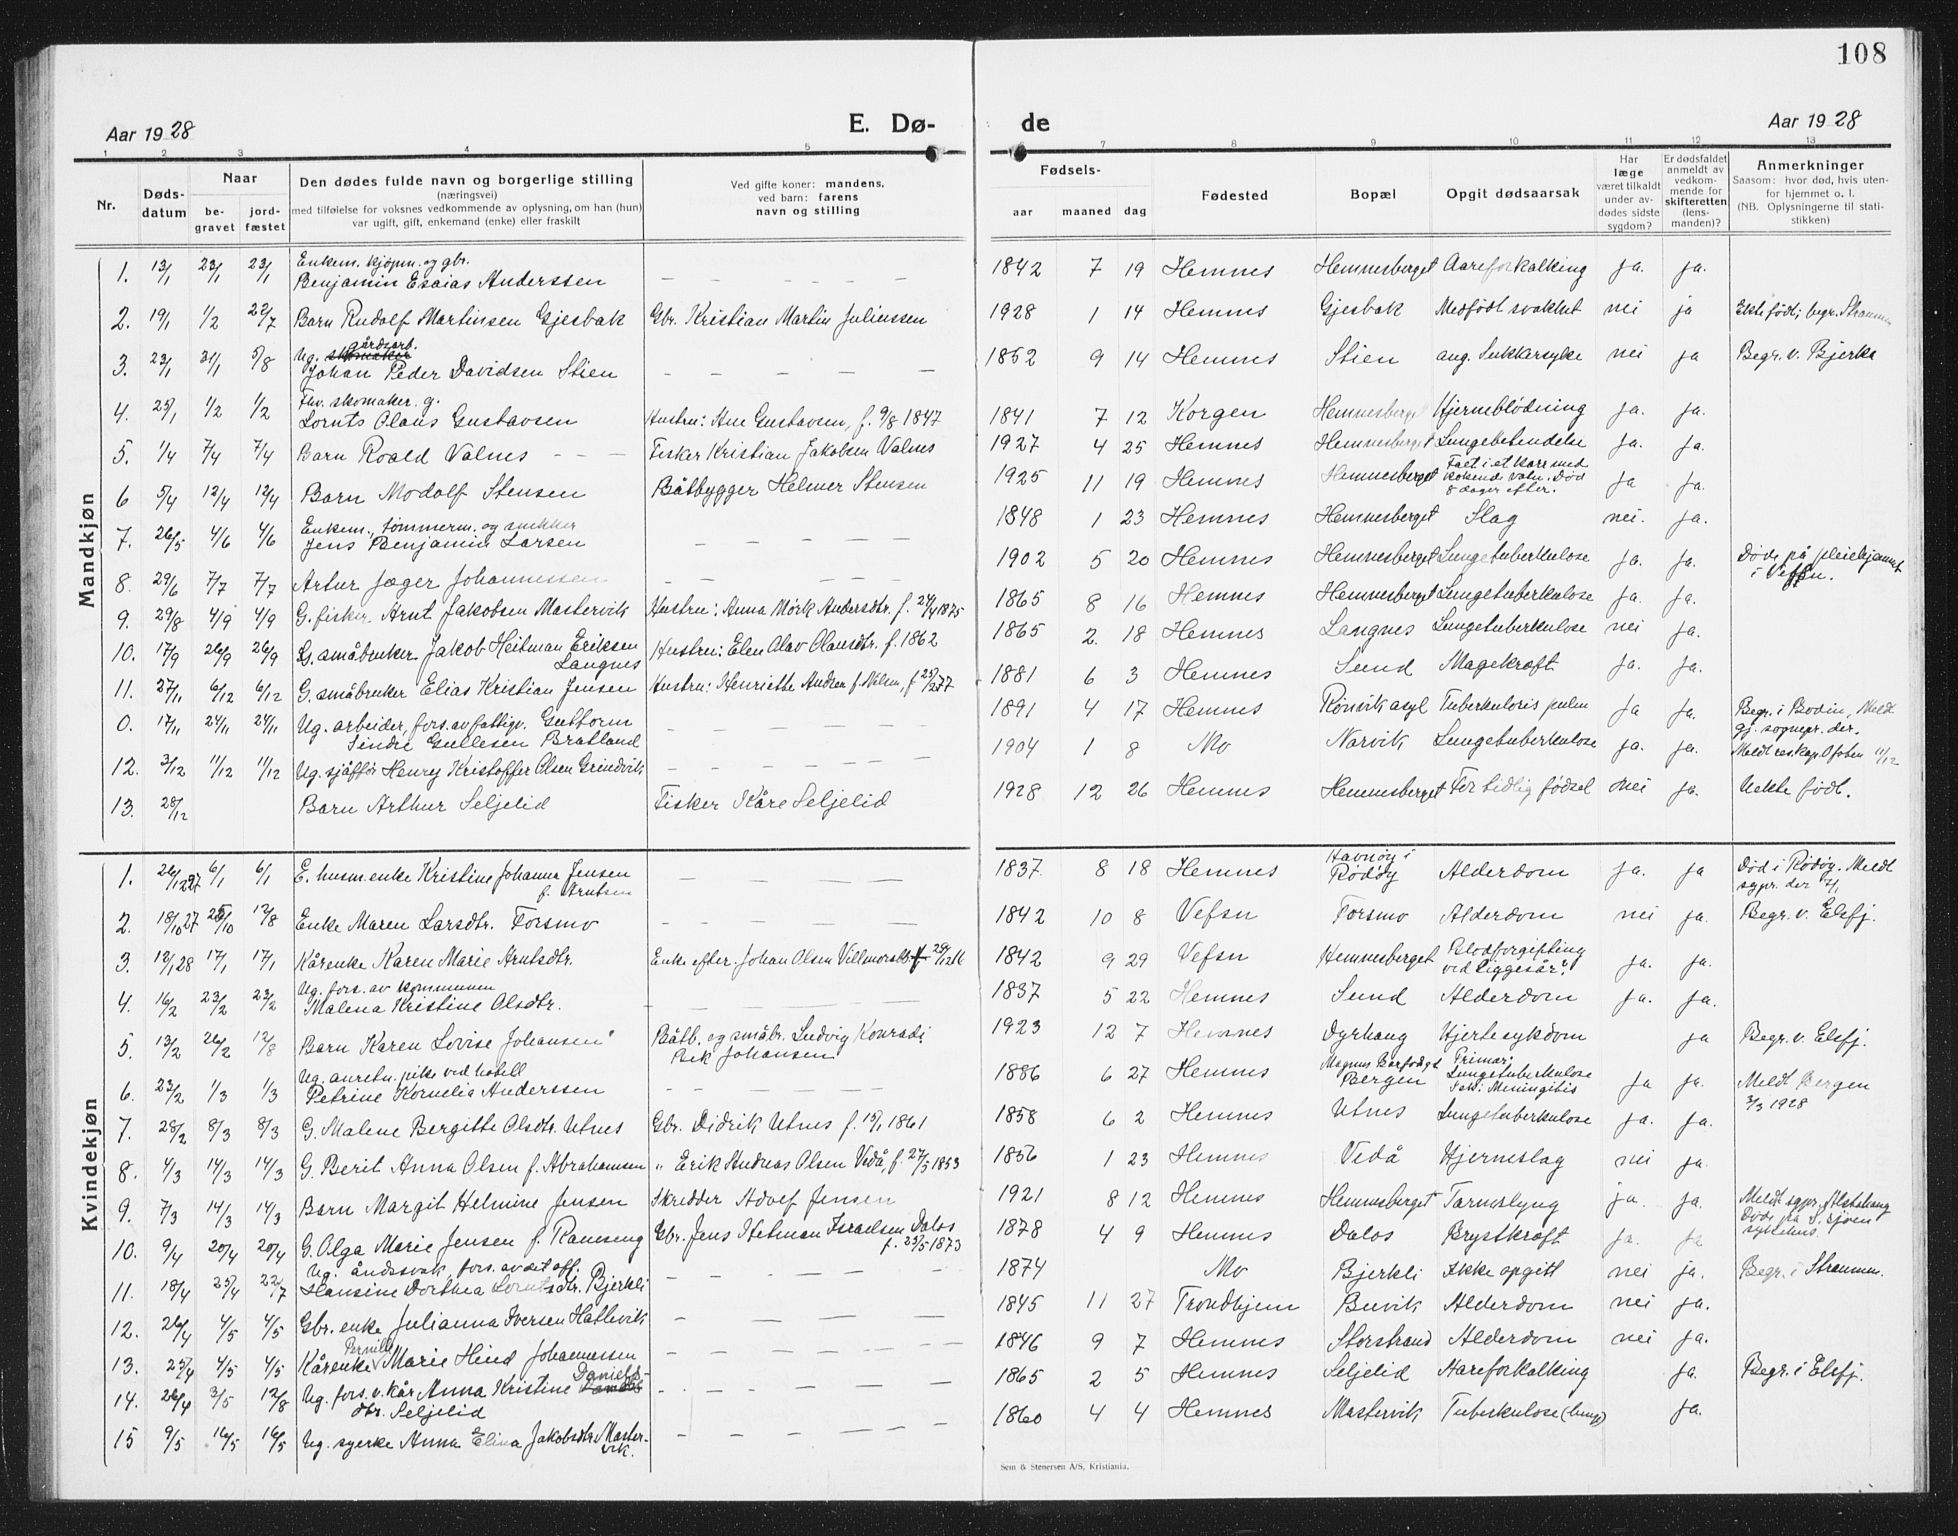 108
Aar 1928 E. Dø- de Aar 1928
1 2 3 4 5 7 8 9 10 11 12 13
Nr. Døds-datum Naar be-gravet jord-fæstet
Den dødes fulde navn og borgerlige stilling
(næringsvei)
med tilføielse for voksnes vedkommende av oplysning, om han (hun)
var ugift, gift, enkemand (enke) eller fraskilt
Ved gifte koner: mandens,
ved barn: farens
navn og stilling
Fødsels- aar maaned dag
Fødested
Bopæl
Opgit dødsaarsak
Har læge været tilkaldt under av-dødes sidste sygdom?
Er dødsfaldet anmeldt av vedkom-mende for skifteretten (lens-manden)?
Anmerkninger
Saasom: hvor død, hvis uten-
for hjemmet o. l.
(NB. Oplysningerne til stati-
stikken)
Mandkjøn
1. 13/1 23/1 23/1 Enkem. kjøpm. og gbr. Benjamin Esaias Anderssen – – – – – 1842 7 19 Hemnes Hemnesberget Aareforkalking ja. ja.
2. 19/1 1/2 22/7 Barn Rudolf Martinsen Gjesbak Gbr. Kristian Martin Juliussen 1928 1 14 Hemnes Gjesbak Medfødt svakhet nei ja Ekte født; begr. Straumen
3. 23/1 31/1 5/8 Ug. gårdsarb. Johan Peder Davidsen Stien – – – – – 1852 9 14 Hemnes Stien ang. Sukkersyke nei ja Begr. v. Bjerka
4. 25/1 1/2 1/2 Fhv. skomaker. g. Lornts Olaus Gustavsen Hustru: Ane Gustavsen, f. 9/8 1847 1841 7 12 Korgen Hemnesberget Hjerneblødning ja. ja.
5. 1/4 7/4 7/4 Barn Roald Valnes – – – Fisker Kristian Jakobsen Valnes 1927 4 25 Hemnes Hemnesberget Lungebetendelse ja. ja.
6 5/4 12/4 12/4 Barn Modolf Stensen Båtbygger Helmer Stensen 1925 11 19 Hemnes Hemnesberget Falt i et kar med kokende vatn. Død 8 dager efter. ja ja.
7. 26/5 4/6 4/6 Enkem., tømmerm. og snekker Jens Benjamin Larsen – – – – – 1848 1 23 Hemnes Hemnesberget Slag nei. ja.
8. 29/6 7/7 7/7 Artur Jæger Johannessen – – – – – 1902 5 20 Hemnes Hemnesberget Lungetuberkulose ja. ja. Døde på pleiehjemmet i Vefsn.
9. 29/8 4/9 4/9 G. fisker Arnt Jakobsen Mastervik Hustru: Anna Mørk Andersdtr. f. 24/4 1875 1865 8 16 Hemnes Hemnesberget Lungetuberkulose ja. ja.
10. 17/9 26/9 26/9 G. småbruker Jakob Heitman Eriksen Langnes Hustru: Elen Olav Olausdtr. f. 1862 1865 2. 18 Hemnes Langnes Lungetuberkulose nei ja.
11. 27/11 6/12 6/12 G. småbruker Elias Kristian Jensen Hustru: Henriette Andrea f. Nilsen, f 25/2 77 1881 6 3 Hemnes Sund Magekræft ja. ja.
0. 17/11 24/11 24/11 Ug. arbeider, fors. av fattigv. Guttorm Sindre Gullesen Bratland – – – – 1891 4 17 Hemnes Rønvik asyl Tuberkulosis pulm ja ja. Begr. i Bodin, Meldt gj. sognepr. der.
12. 3/12 11/12 11/12 Ug. sjåffør Henry Kristoffer Olsen Grindvik – – – – – 1904 1 8 Mo Narvik Lungetuberkulose ja. ja. Meldt reskap. Ofoten 11/12
13. 28/12 Barn Arthur Seljelid Fisker Kåre Seljelid 1928 12 26 Hemnes Hemnesberget For tidlig fødsel nei ja. Uekte født.
Kvindekjøn
1. 26/12 27 6/1 6/1 E. husm. enke Kristine Johanna Jensen f. Arntsen – – – – 1837 8 18 Hemnes Havnøy i Rødøy Alderdom ja. ja Død i Rødøy. Meldt sgpr. der 7/1
2. 18/10 27 25/10 12/8 Enke Maren Larsdtr. Forsmo – – – – 1842 10 8 Vefsn Forsmo Alderdom nei ja. Begr. v. Elsfj.
3. 12/1 28 17/1 17/1 Kårenke Karen Marie Arntsdtr. Enke efter Johan Olsen 29/12 16 1842 9 29 Vefsn Hemnesberget Blodforgiftning ved liggesår. ja. ja.
4. 16/2 23/2 23/2 Ug. fors. av kommunen Malena Kristine Olsdtr. – – – – 1837 5 22 Hemnes Sund Alderdom ja. ja.
5. 13/2 26/2 12/8 Barn Karen Lovise Johansen Båtb. og småbr. Ludvig Konradi Bek Johansen 1923 12 7 Hemnes Dyrhaug Hjertesykdom ja Begr. v. Elsfj.
6. 23/2 1/3 1/3 Ug. anretn. pike ved hotell Petrine Kornelia Anderssen – – – – 1886 6 27 Hemnes Magnus Barfodsgt Bergen Primær: Lungetuberkulose Sek: Meningitis ja ja. Meldt Bergen 3/3 1928
7. 28/2 8/3 8/3 G. Malene Bergitte Olsdtr. Utnes Gbr. Didrik Utnes f. 15/1 1861 1858 6 2 Hemnes Utnes Lungetuberkulose ja. ja.
8. 4/3 14/3 14/3 G. Berit Anna Olsen f. Abrahamsen „ Erik Andreas Olsen Vedå, f. 27/5 1853 1856 1 23 Hemnes Vedå Hjerneslag nei ja.
9. 7/3 14/3 14/3 Barn Margit Helmine Jensen Skredder Adolf Jensen 1921 8 12 Hemnes Hemnesberget Tarmslyng ja. ja. Meldt sgpr. Alstahaug Døde på S. sjøen sykehus.
10. 9/4 20/4 20/4 G. Olga Marie Jensen f. Raneseng Gbr. Jens Hetman Israelsen Dalos f. 25/5 1873 1878 4 9 Hemnes Dalos Brystkræft ja. ja
11. 18/4 25/4 22/7 Ug. åndssvak, fors. av det off. Hansine Dorthea Lorntsdtr. Bjerkli – – – – – 1874 Mo Bjerkli Ikke opgitt nei ja. Begr. i Straumen.
12. 26/4 4/5 4/5 Gbr. enke Julianna Iversen Hattevik – – – – – 1845 11 27 Trondhjem Buvik Alderdom nei ja.
13. 25/4 4/5 4/5 Kårenke Pernille Marie Hind Johannessen – – – – – 1846 9 7 Hemnes Storstrand Alderdom nei ja.
14. 26/4 3/5 12/8 Ug. fors. v. kår Anna Kristine Daniels-dtr. Seljelid – – – – – 1865 2 5 Hemnes Seljelid Aareforkalking ja. Begr. i Elsfj.
15 9/5 16/5 16/5 Ug. syerke Anna Elina Jakobsdtr. Master-vik. – – – – – 1860 4 4 Hemnes Mastervik Tuberkulose (lunge) ja.
Sem & Stenersen A/S, Kristiania.